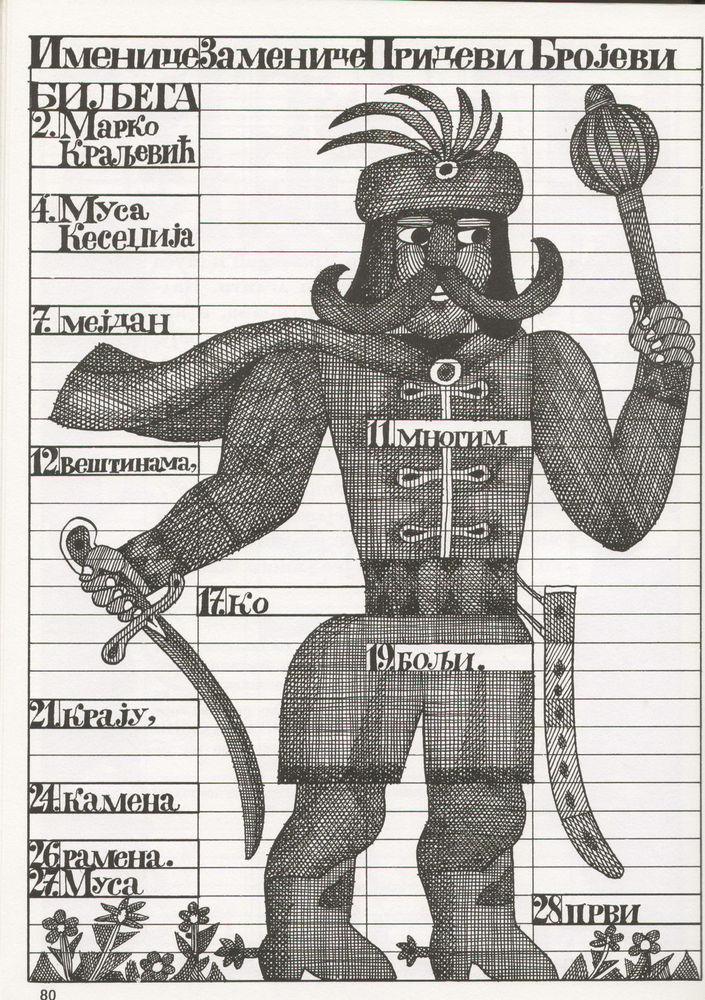 Именице Заменице Придеви Бројеви
БИЉЕГА
2. Марко
Краљевић
4. Муса
Кесеџија
7. мејдан
11. многим
12. вештинама,
17. ко
19. бољи.
21. крају,
24. камена
26. рамена.
27. Муса
28. први
80